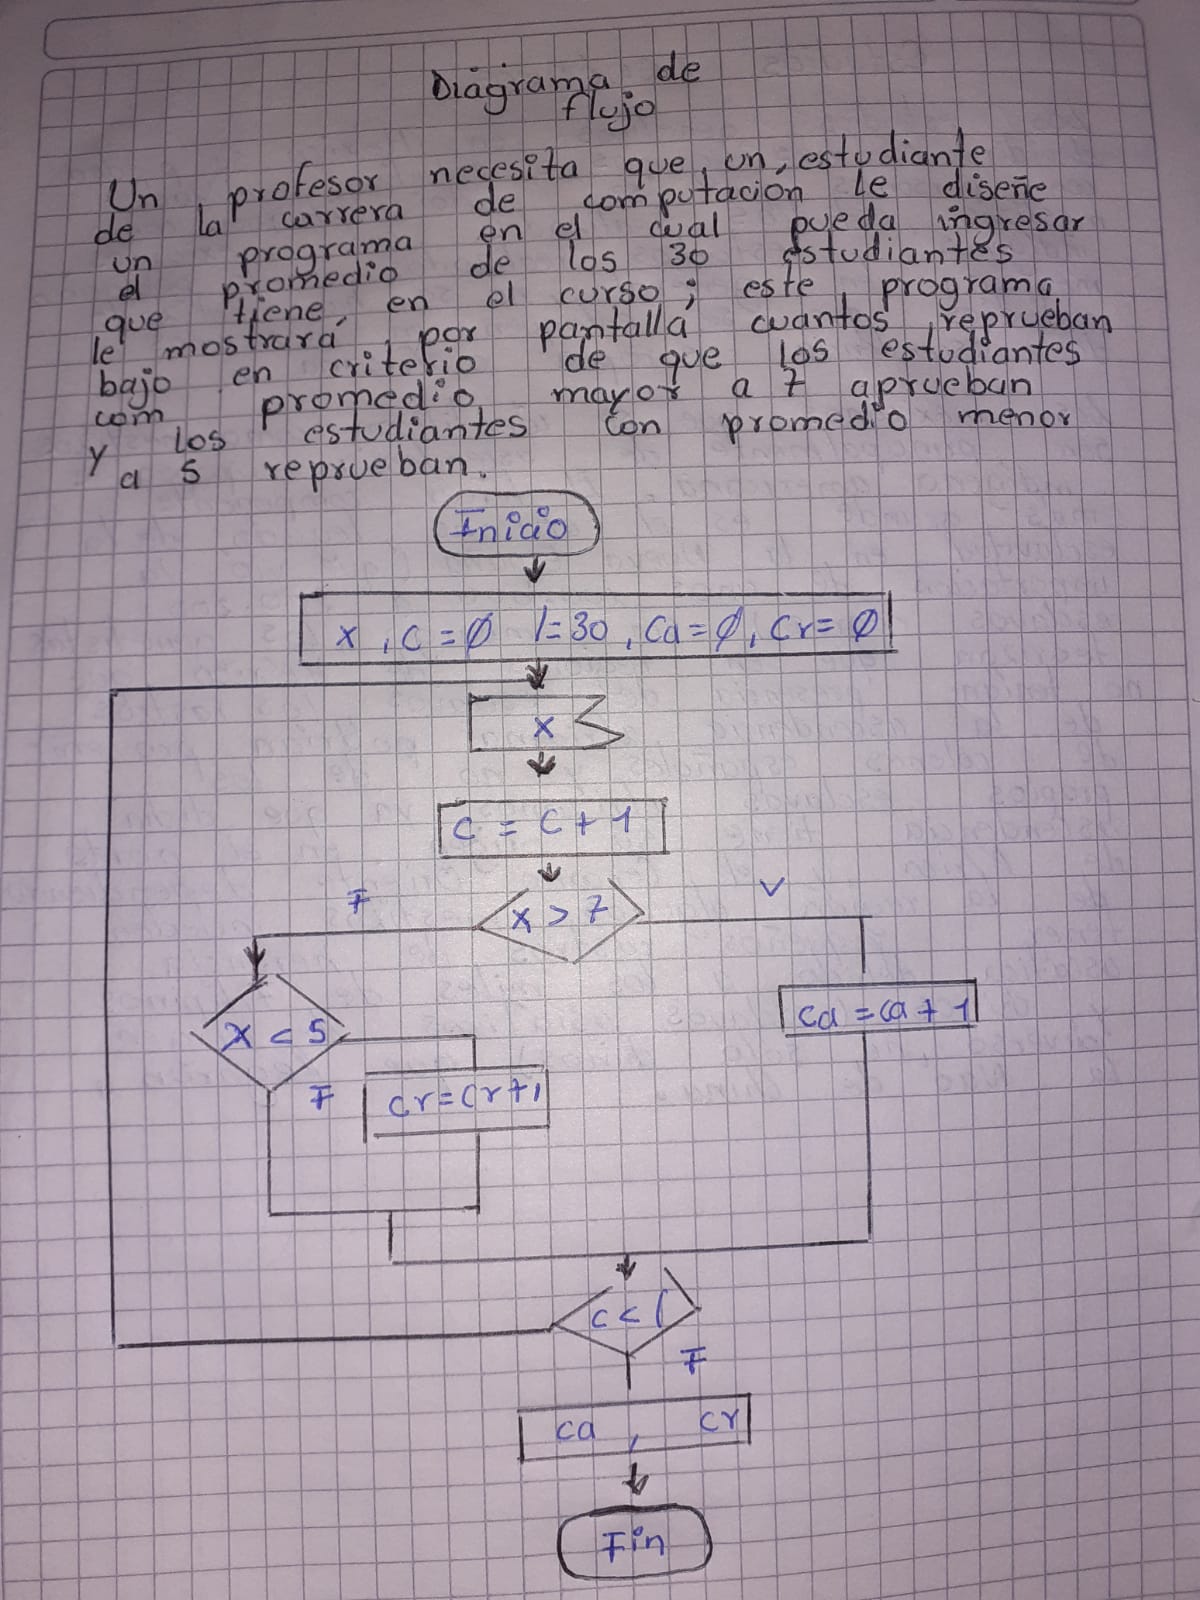 Diagrama de
flujo
Un profesor necesita que un estudiante
de la carrera de computación le diseñe
un programa en el cual pueda ingresar
el promedio de los 30 estudiantes
que tiene, en el curso; este programa
le mostrará por pantalla cuantos reprueban
bajo en criterio de que los estudiantes
com promedio mayor a 7 aprueban
y los estudiantes con promedio menor
a 5 reprueban.
Inicio
x , c = Ø l=30 , Ca = Ø, Cr = Ø
x
c = c + 1
F
x > 7
V
x < 5
Ca = Ca + 1
F
cr = cr+1
c < l
F
ca , cr
Fin